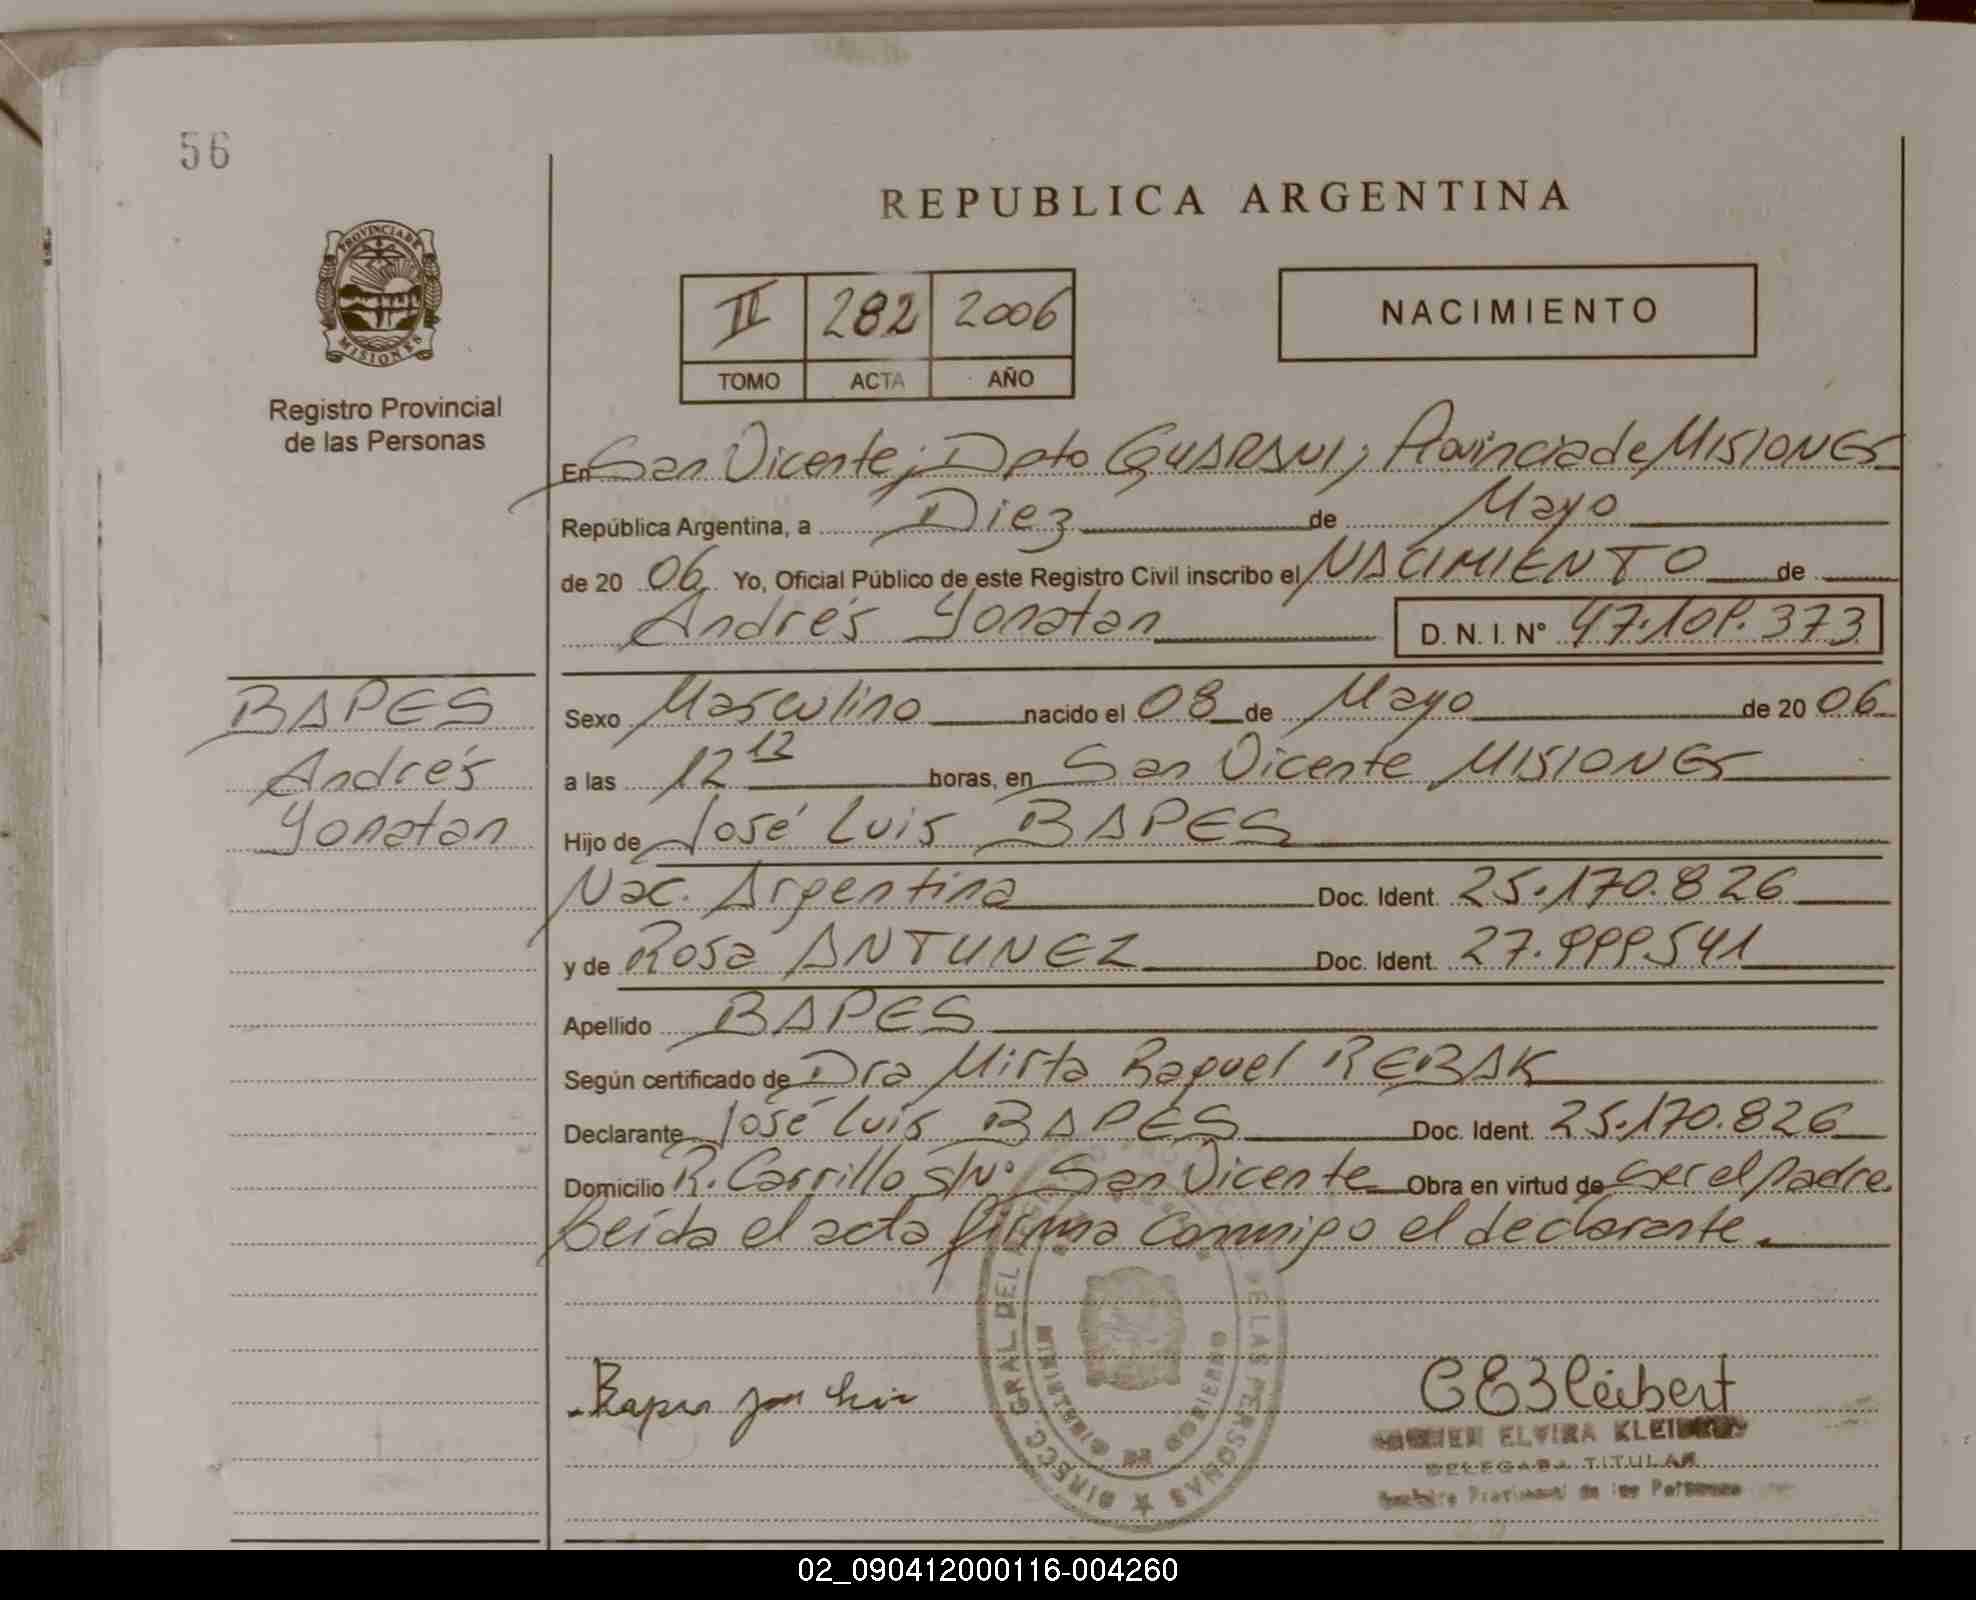 56
REPUBLICA ARGENTINA
PROVINCIA DE MISIONES
Registro Provincial
de las Personas
II 282 2006
TOMO ACTA AÑO
NACIMIENTO
En San Vicente; Dpto GUARANI; Provincia de MISIONES
República Argentina, a Diez de Mayo
de 2006 Yo, Oficial Público de este Registro Civil inscribo el NACIMIENTO de
Andrés Yonatan D. N. I. Nº 47.109.373
BAPES
Andrés
Yonatan
Sexo Masculino nacido el 08 de Mayo de 2006
a las 12 13 horas, en San Vicente MISIONES
Hijo de José Luis BAPES
Nac. Argentina Doc. Ident. 25.170.826
y de Rosa ANTUNEZ Doc. Ident. 27.999.541
Apellido BAPES
Según certificado de Dra Mirta Raquel REBAK
Declarante José Luis BAPES Doc. Ident. 25.170.826
Domicilio R. Carrillo S/Nº San Vicente Obra en virtud de ser el padre.
Leída el acta firma conmigo el declarante.
DIRECC. GRAL DEL DE LAS PERSONAS
MINISTERIO DE GOBIERNO
Bapes José Luis
CEKleibert
ELVIRA
DELEGADA TITULAR
Registro Provincial de las Personas
02_090412000116-004260